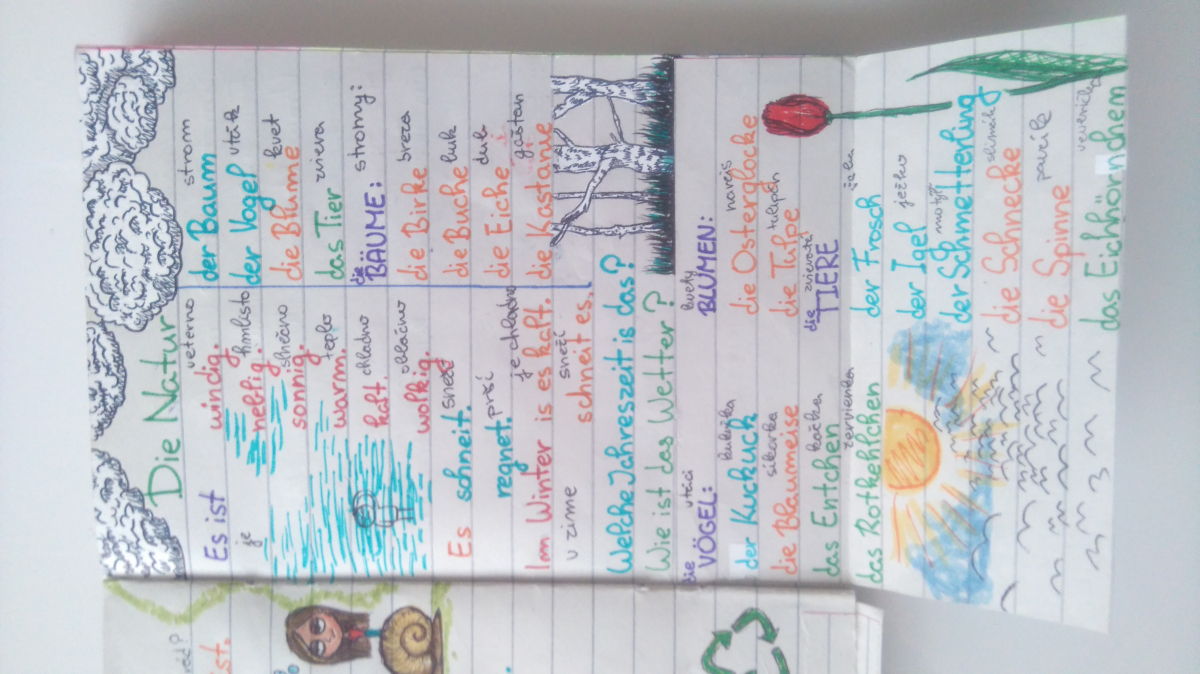 Die Natur
veterno
Es ist windig.
je hmlisto
neblig.
slnečno
sonnig.
teplo
warm.
chladno
kalt.
oblačno
wolkig.
Es schneit.
sneží
regnet.
prší
je chladno
Im Winter is es kalt.
v zime sneží
schneit es.
strom
der Baum
vták
der Vogel
kvet
die Blume
zviera
das Tier
stromy:
die BÄUME:
breza
die Birke
buk
die Buche
dub
die Eiche
gaštan
die Kastanie
Welche Jahreszeit is das?
Wie ist das Wetter?
vtáci
die VÖGEL:
kukučka
der Kuckuck
sikorka
die Blaumeise
kačka
das Entchen
červienka
das Rotkehlchen
kvety
BLUMEN:
narcis
die Osterglocke
tulipán
die Tulpe
zvieratá
die TIERE
žaba
der Frosch
ježko
der Igel
motýľ
der Schmetterling
slimák
die Schnecke
pavúk
die Spinne
veverička
das Eichhörnchem
ist.